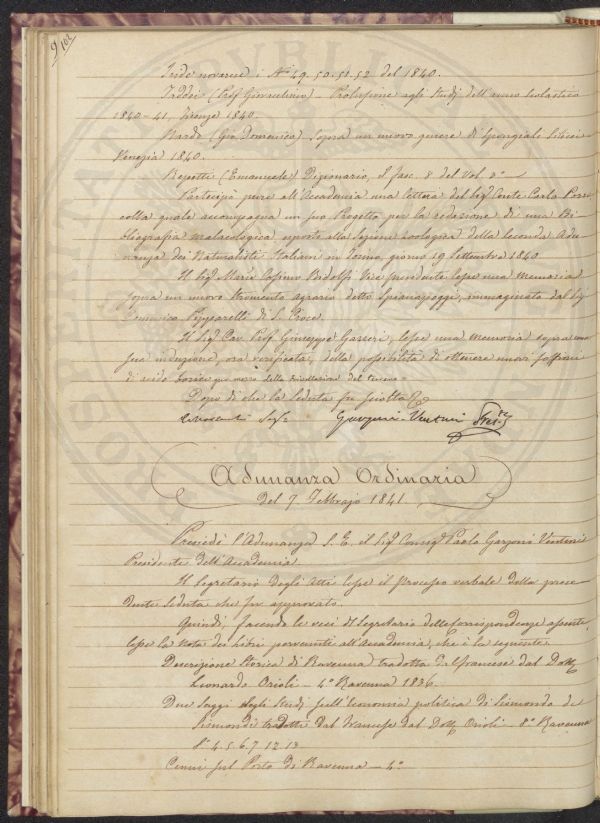 9
102
Tride novarese i Ni 49. 50. 51. 52 del 1840.
Taddei (Prof Gioacchino) – Prolusione agli Studj dell'anno scolastico
1840–41, Firenze 1840.
Nardo (Gio Domenico) Sopra un nuovo genere di Spongiali Silicei
Venezia 1840.
Repetti (Emanuele) Dizionario, il fasc. 8 del Vol. 3°
Partecipò pure all'Accademia una lettera del Sigr Conte Carlo Porro
colla quale accompagna un suo Progetto per la redazione di una Bi
bliografia malacologica esposto alla Sezione zoologica della Seconda Adu
nanza dei Naturalisti Italiani in Torino, giorno 19 Settembre 1840.
Il Sigr March Cosimo Ridolfi Vice presidente lesse una Memoria
sopra un nuovo strumento agrario detto Spianapiogge, immaginato dal Sigr
Domenico Papparelli di S. Croce.
Il Sigr Cav. Prof Giuseppe Gazzeri, lesse una memoria sopra una
sua induzione, ora verificata, della possibilità di ottenere nuovi soffioni
di acido borico per mezzo della trivellazione del terreno =
Dopo di che la Seduta fu sciolta
Garzoni Venturi Pres.
Adunanza Ordinaria
del 7 Febbrajo 1841.
Presiedè l'Adunanza S. E. il Sigr Consigr Paolo Garzoni Venturi
Presidente dell'Accademia
Il Segretario degli Atti lesse il Processo verbale della prece
dente Seduta che fu approvato.
Quindi, facendo le veci del Segretario delle Corrispondenze assente,
lesse la Nota dei Libri pervenuti all'Accademia, che è la seguente:
Descrizione Storica di Ravenna tradotta dal francese dal Dottr
Leonardo Orioli – 4° Ravenna 1836.
Due Saggi degli Studj sull'economia politica di Sismondo de
Sismondi tradotti dal francese dal Dottr Orioli – 8° Ravenna
8° 4. 5. 6. 7 12. 13
Cenni sul Porto di Ravenna – 4°